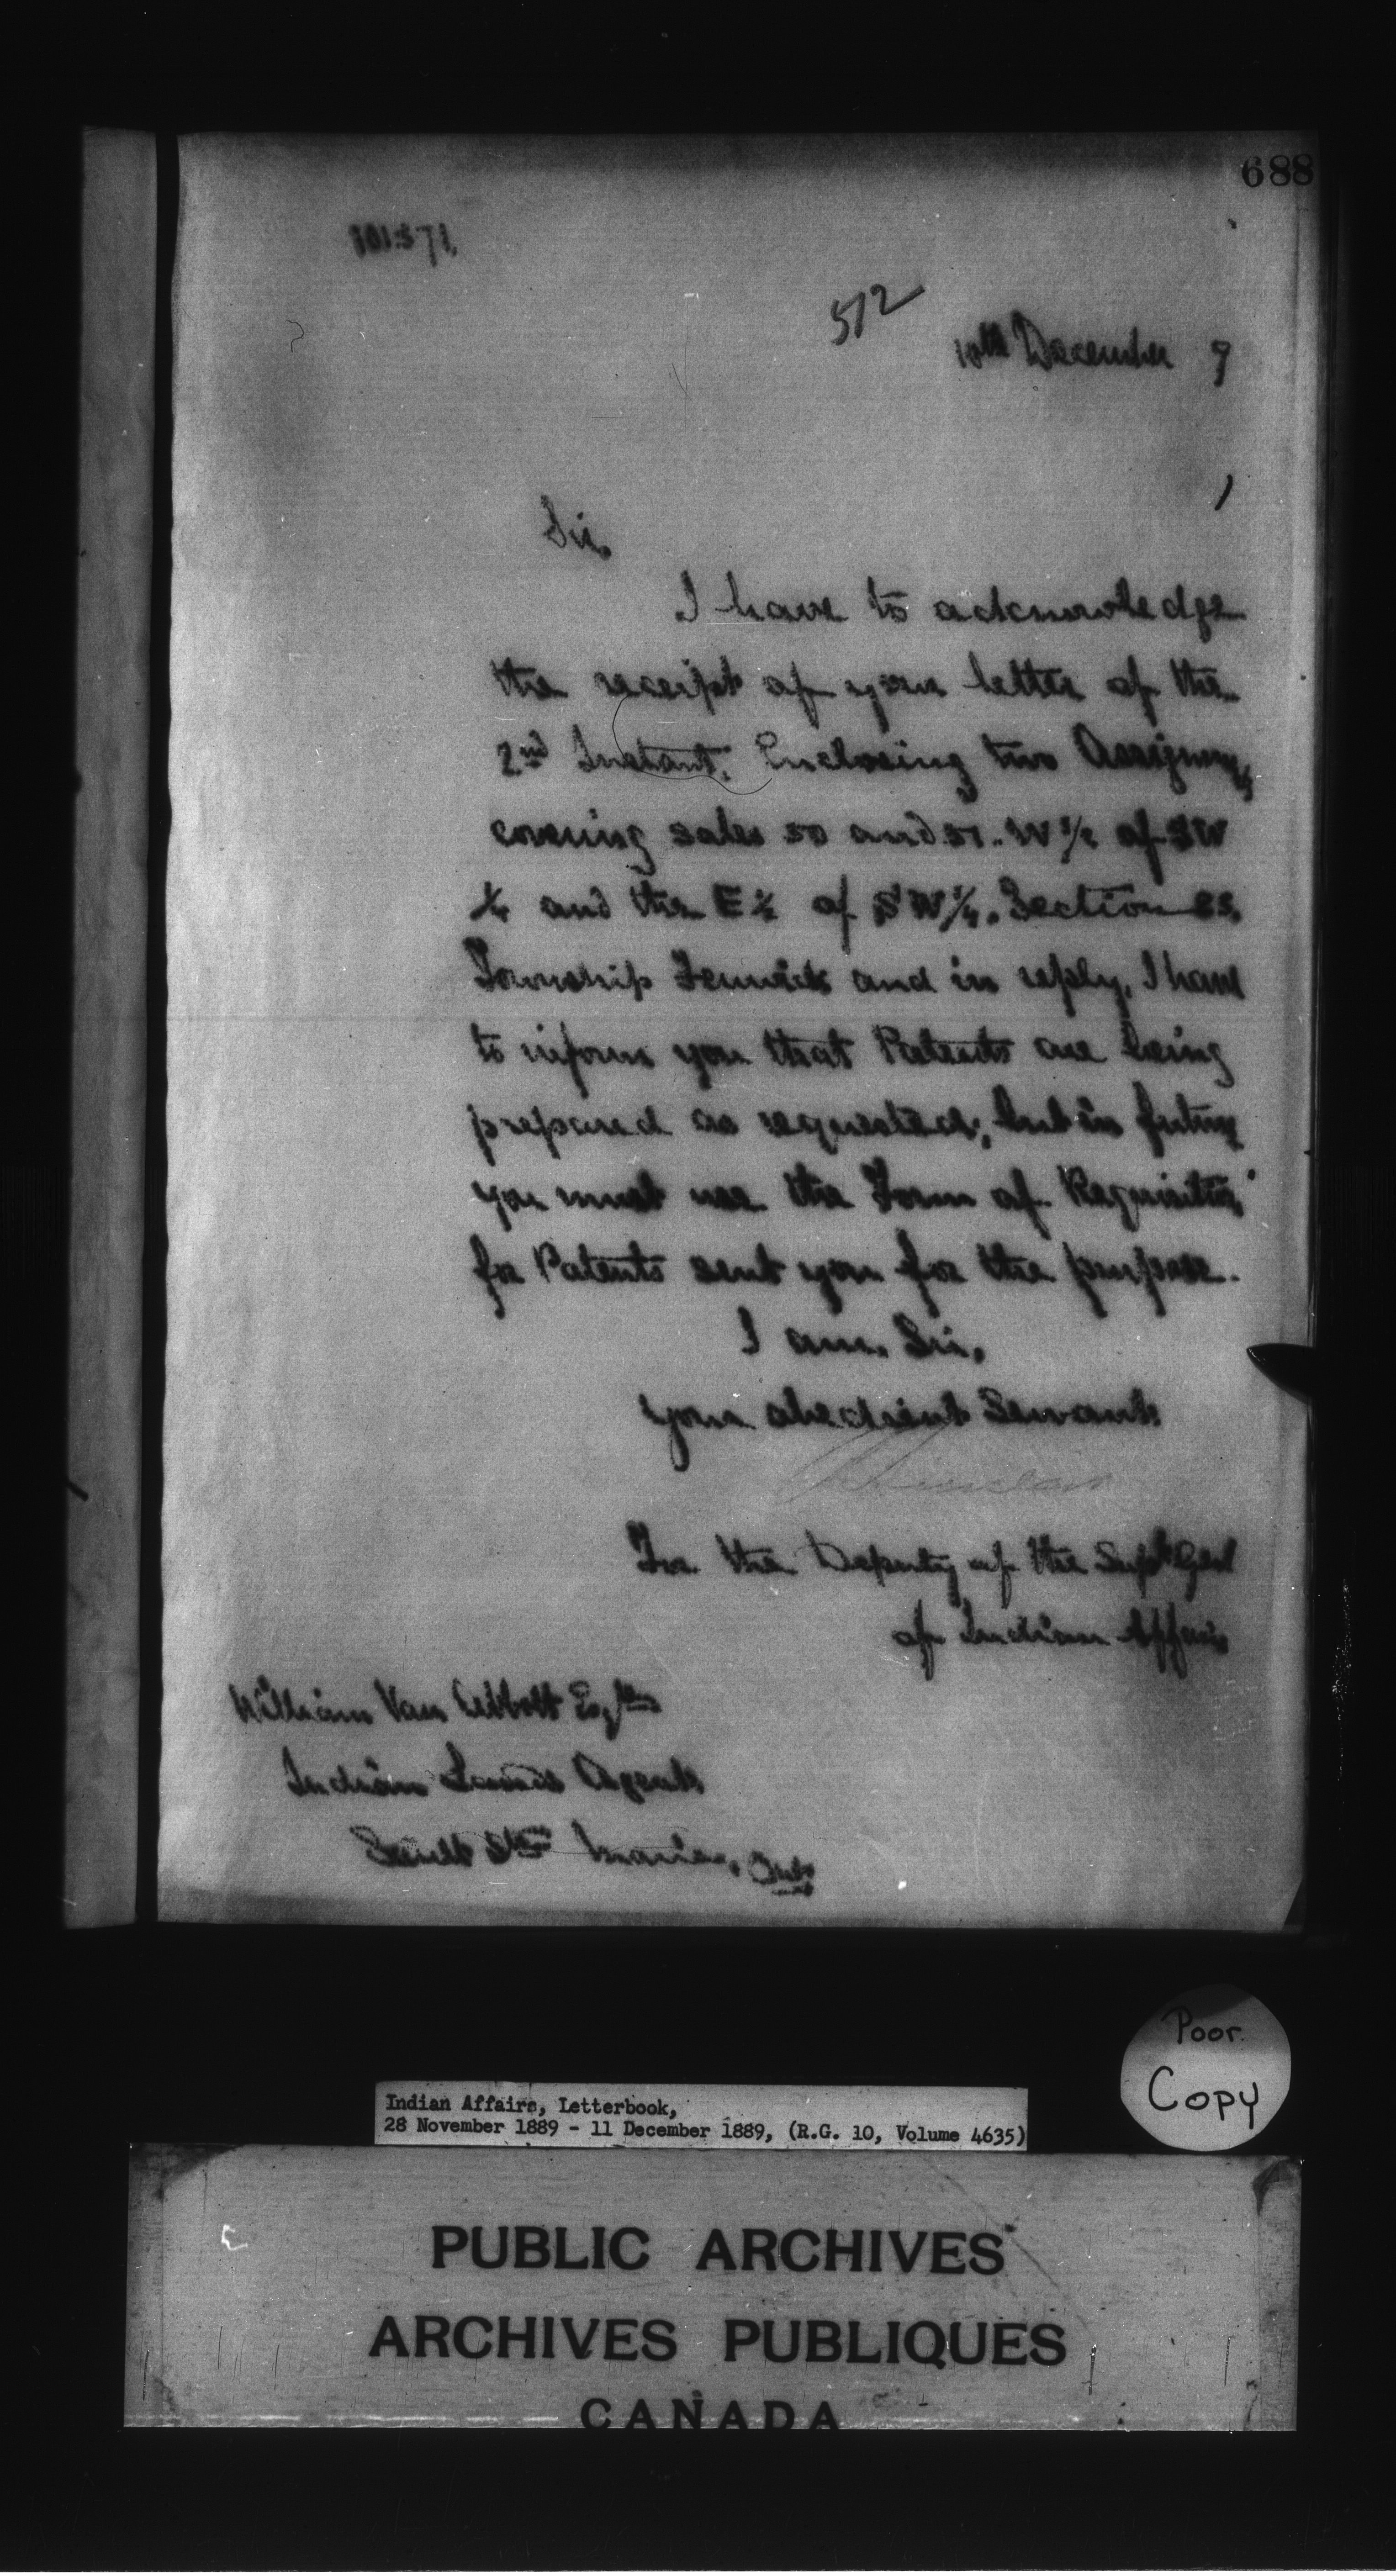 688
101571
512
10th December 9
Sir,
I have to acknowledge
the receipt of your letter of the
2nd Instant, Enclosing two
covering sales 50 and 51. W 1/2 of SW
1/4 and the E 1/2 of SW 1/4, Section 23,
Township Fenwick and in reply, I have
to inform you that Patents are being
prepared as requested, but in future
you must use the Form of Requisition
for Patents sent you for the purpose.
I am, Sir,
your obedient Servant
For the Deputy of the Supt Genl
of Indian Affairs
William Van Abbott Esqre
Indian Lands Agent
Sault Ste Marie, Ont
Poor
Copy
Indian Affairs, Letterbook,
28 November 1889 - 11 December 1889, (R.G. 10, Volume 4635)
PUBLIC ARCHIVES
ARCHIVES PUBLIQUES
CANADA